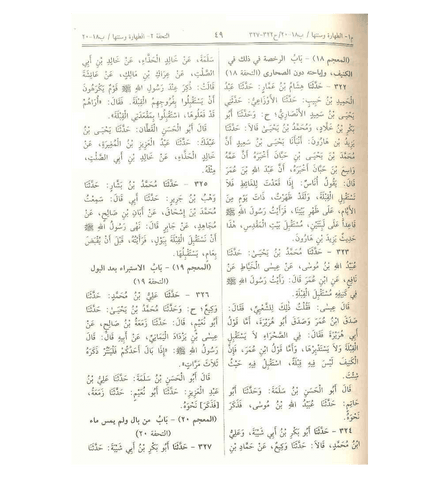 م١- الطهارة وسننها / ب١٨-٢٠/ح٣٢٢-٣٢٧
٤٩
التحفة ٢- الطهارة وسننها / ب١٨-٢٠
(المعجم ١٨) - بَابُ الرخصة في ذلك في
الكنيف، وإباحته دون الصحارى (التحفة ١٨)
٣٢٢ - حَدَّثَنَا هِشَامُ بْنُ عَمَّارٍ: حَدَّثَنَا عَبْدُ
الْحَمِيدِ بْنُ حَبِيبٍ: حَدَّثَنَا الأَوْزَاعِيُّ: حَدَّثَنِي
يَحْيَى بْنُ سَعِيدٍ الأَنْصَارِيُّ؛ ح: وَحَدَّثَنَا أَبُو
بَكْرِ بْنُ خَلَّادٍ، وَمُحَمَّدُ بْنُ يَحْيَىٰ قَالَا: حَدَّثَنَا
يَزِيدُ بْنُ هَارُونَ: أَنْبَأَنَا يَحْيَى بْنُ سَعِيدٍ أَنَّ
مُحَمَّدَ بْنَ يَحْيَى بْنِ حَبَّانَ أَخْبَرَهُ أَنَّ عَمَّهُ
وَاسِعَ بْنَ حَبَّانَ أَخْبَرَهُ، أَنَّ عَبْدَ اللهِ بْنَ عُمَرَ
قَالَ: يَقُولُ أُنَاسٌ: إِذَا قَعَدْتَ لِلْغَائِطِ فَلَا
تَسْتَقْبِلِ الْقِبْلَةَ، وَلَقَدْ ظَهَرْتُ، ذَاتَ يَوْمٍ مِنَ
الأَيَّامِ، عَلَى ظَهْرِ بَيْتِنَا، فَرَأَيْتُ رَسُولَ اللهِ ﷺ
قَاعِدًا عَلَى لَبِنَتَيْنِ، مُسْتَقْبِلَ بَيْتِ الْمَقْدِسِ. هَذَا
حَدِيثُ يَزِيدَ بْنِ هَارُونَ.
٣٢٣ - حَدَّثَنَا مُحَمَّدُ بْنُ يَحْيَىٰ: حَدَّثَنَا
عُبَيْدُ اللهِ بْنُ مُوسَى، عَنْ عِيسَى الْحَنَّاطِ عَنْ
نَافِعٍ، عَنِ ابْنِ عُمَرَ قَالَ: رَأَيْتُ رَسُولَ اللهِ ﷺ
فِي كَنِيفِهِ مُسْتَقْبِلَ الْقِبْلَةِ.
قَالَ عِيسَى: فَقُلْتُ ذَلِكَ لِلشَّعْبِيِّ، فَقَالَ:
صَدَقَ ابْنُ عُمَرَ وَصَدَقَ أَبُو هُرَيْرَةَ، أَمَّا قَوْلُ
أَبِي هُرَيْرَةَ فَقَالَ: فِي الصَّحْرَاءِ لَا يَسْتَقْبِلِ
الْقِبْلَةَ وَلَا يَسْتَدْبِرْهَا، وَأَمَّا قَوْلُ ابْنِ عُمَرَ، فَإِنَّ
الْكَنِيفَ لَيْسَ فِيهِ قِبْلَةٌ، اسْتَقْبِلْ فِيهِ حَيْثُ
شِئْتَ.
قَالَ أَبُو الْحَسَنِ بْنُ سَلَمَةَ: وَحَدَّثَنَا أَبُو
حَاتِمٍ: حَدَّثَنَا عُبَيْدُ اللهِ بْنُ مُوسَى، فَذَكَرَ
نَحْوَهُ.
٣٢٤ - حَدَّثَنَا أَبُو بَكْرِ بْنُ أَبِي شَيْبَةَ، وَعَلِيُّ
ابْنُ مُحَمَّدٍ، قَالَا: حَدَّثَنَا وَكِيعٌ، عَنْ حَمَّادِ بْنِ
سَلَمَةَ، عَنْ خَالِدٍ الْحَذَّاءِ، عَنْ خَالِدِ بْنِ أَبِي
الصَّلْتِ، عَنْ عِرَاكِ بْنِ مَالِكٍ، عَنْ عَائِشَةَ
قَالَتْ: ذُكِرَ عِنْدَ رَسُولِ اللهِ ﷺ قَوْمٌ يَكْرَهُونَ
أَنْ يَسْتَقْبِلُوا بِفُرُوجِهِمُ الْقِبْلَةَ. فَقَالَ: «أُرَاهُمْ
قَدْ فَعَلُوهَا، اسْتَقْبِلُوا بِمَقْعَدَتِي الْقِبْلَةَ».
قَالَ أَبُو الْحَسَنِ الْقَطَّانُ: حَدَّثَنَا يَحْيَى بْنُ
عَبْدَكَ: حَدَّثَنَا عَبْدُ الْعَزِيزِ بْنُ الْمُغِيرَةِ، عَنْ
خَالِدٍ الْحَذَّاءِ، عَنْ خَالِدِ بْنِ أَبِي الصَّلْتِ،
مِثْلَهُ.
٣٢٥ - حَدَّثَنَا مُحَمَّدُ بْنُ بَشَّارٍ: حَدَّثَنَا
وَهْبُ بْنُ جَرِيرٍ: حَدَّثَنَا أَبِي قَالَ: سَمِعْتُ
مُحَمَّدَ بْنَ إِسْحَاقَ، عَنْ أَبَانَ بْنِ صَالِحٍ، عَنْ
مُجَاهِدٍ، عَنْ جَابِرٍ قَالَ: نَهَى رَسُولُ اللهِ ﷺ
أَنْ نَسْتَقْبِلَ الْقِبْلَةَ بِبَوْلٍ، فَرَأَيْتُهُ، قَبْلَ أَنْ يُقْبَضَ
بِعَامٍ، يَسْتَقْبِلُهَا.
(المعجم ١٩) - بَابُ الاستبراء بعد البول
(التحفة ١٩)
٣٢٦ - حَدَّثَنَا عَلِيُّ بْنُ مُحَمَّدٍ: حَدَّثَنَا
وَكِيعٌ؛ ح: وَحَدَّثَنَا مُحَمَّدُ بْنُ يَحْيَىٰ: حَدَّثَنَا
أَبُو نُعَيْمٍ، قَالَ: حَدَّثَنَا زَمْعَةُ بْنُ صَالِحٍ، عَنْ
عِيسَى بْنِ يَزْدَادَ الْيَمَانِيِّ، عَنْ أَبِيهِ قَالَ: قَالَ
رَسُولُ اللهِ ﷺ: «إِذَا بَالَ أَحَدُكُمْ فَلْيَنْتُرْ ذَكَرَهُ
ثَلَاثَ مَرَّاتٍ».
قَالَ أَبُو الْحَسَنِ بْنُ سَلَمَةَ: حَدَّثَنَا عَلِيُّ بْنُ
عَبْدِ الْعَزِيزِ: حَدَّثَنَا أَبُو نُعَيْمٍ: حَدَّثَنَا زَمْعَةُ،
[فَذَكَرَ] نَحْوَهُ.
(المعجم ٢٠) - بَابُ من بال ولم يمس ماء
(التحفة ٢٠)
٣٢٧ - حَدَّثَنَا أَبُو بَكْرِ بْنُ أَبِي شَيْبَةَ: حَدَّثَنَا